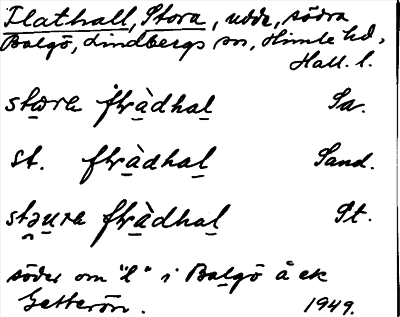 Flathall, Stora, udde, södra
Balgö, Lindbergs sn, Himle hd,
Hall. l.
stora flràdhal Sa.
st. flràdhal Sand.
stəura flràdhal St.
söder om "l" i Balgö å ek
Getterön. 1949.